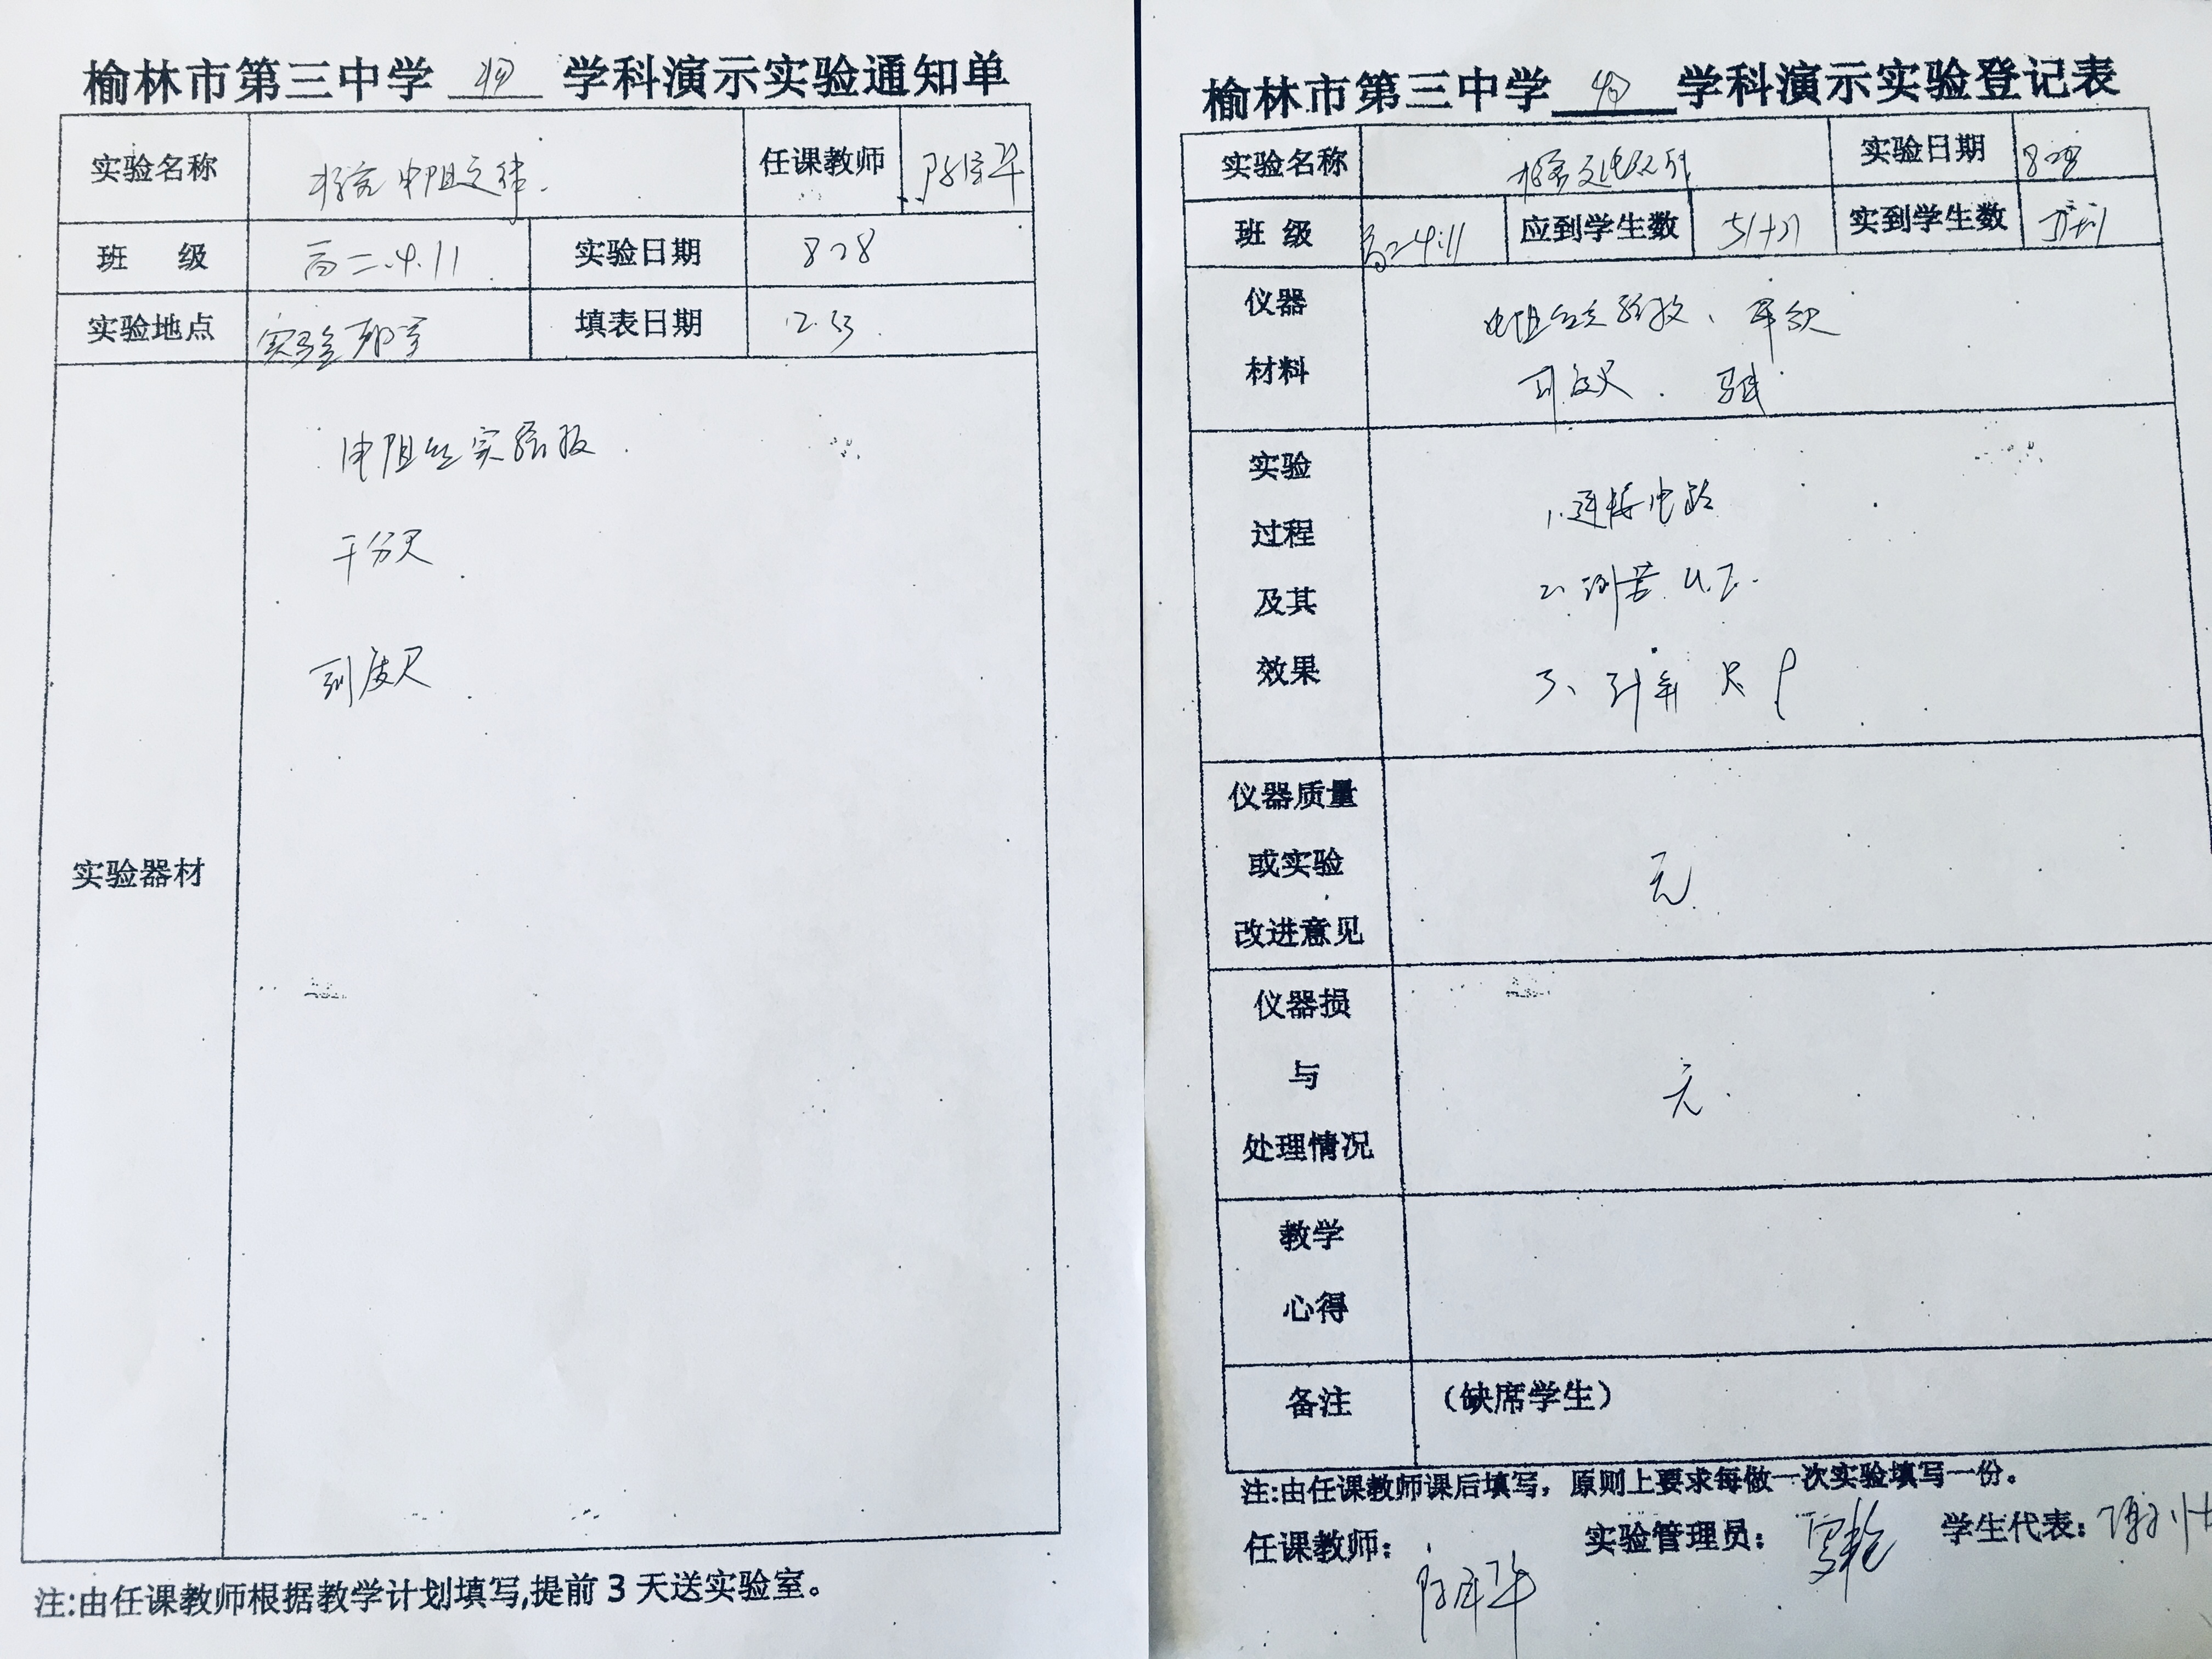 榆林市第三中学 物 学科演示实验通知单
实验名称 探究电阻定律. 任课教师
班 级 高二.4.11 实验日期 828
实验地点 实验教室 填表日期
实验器材
电阻丝实验板
千分尺
刻度尺
注:由任课教师根据教学计划填写,提前3天送实验室。
榆林市第三中学 物 学科演示实验登记表
实验名称 实验日期 828
班 级 高二4.11 应到学生数 实到学生数
仪器 电阻丝实验板、
材料 刻度尺.
实验 1.连接电路
过程
及其 2. U.I.
效果 3、计算 R ρ
仪器质量
或实验 无
改进意见
仪器损
与 无.
处理情况
教学
心得
备注 (缺席学生)
注:由任课教师课后填写，原则上要求每做一次实验填写一份。
任课教师: 实验管理员: 学生代表: